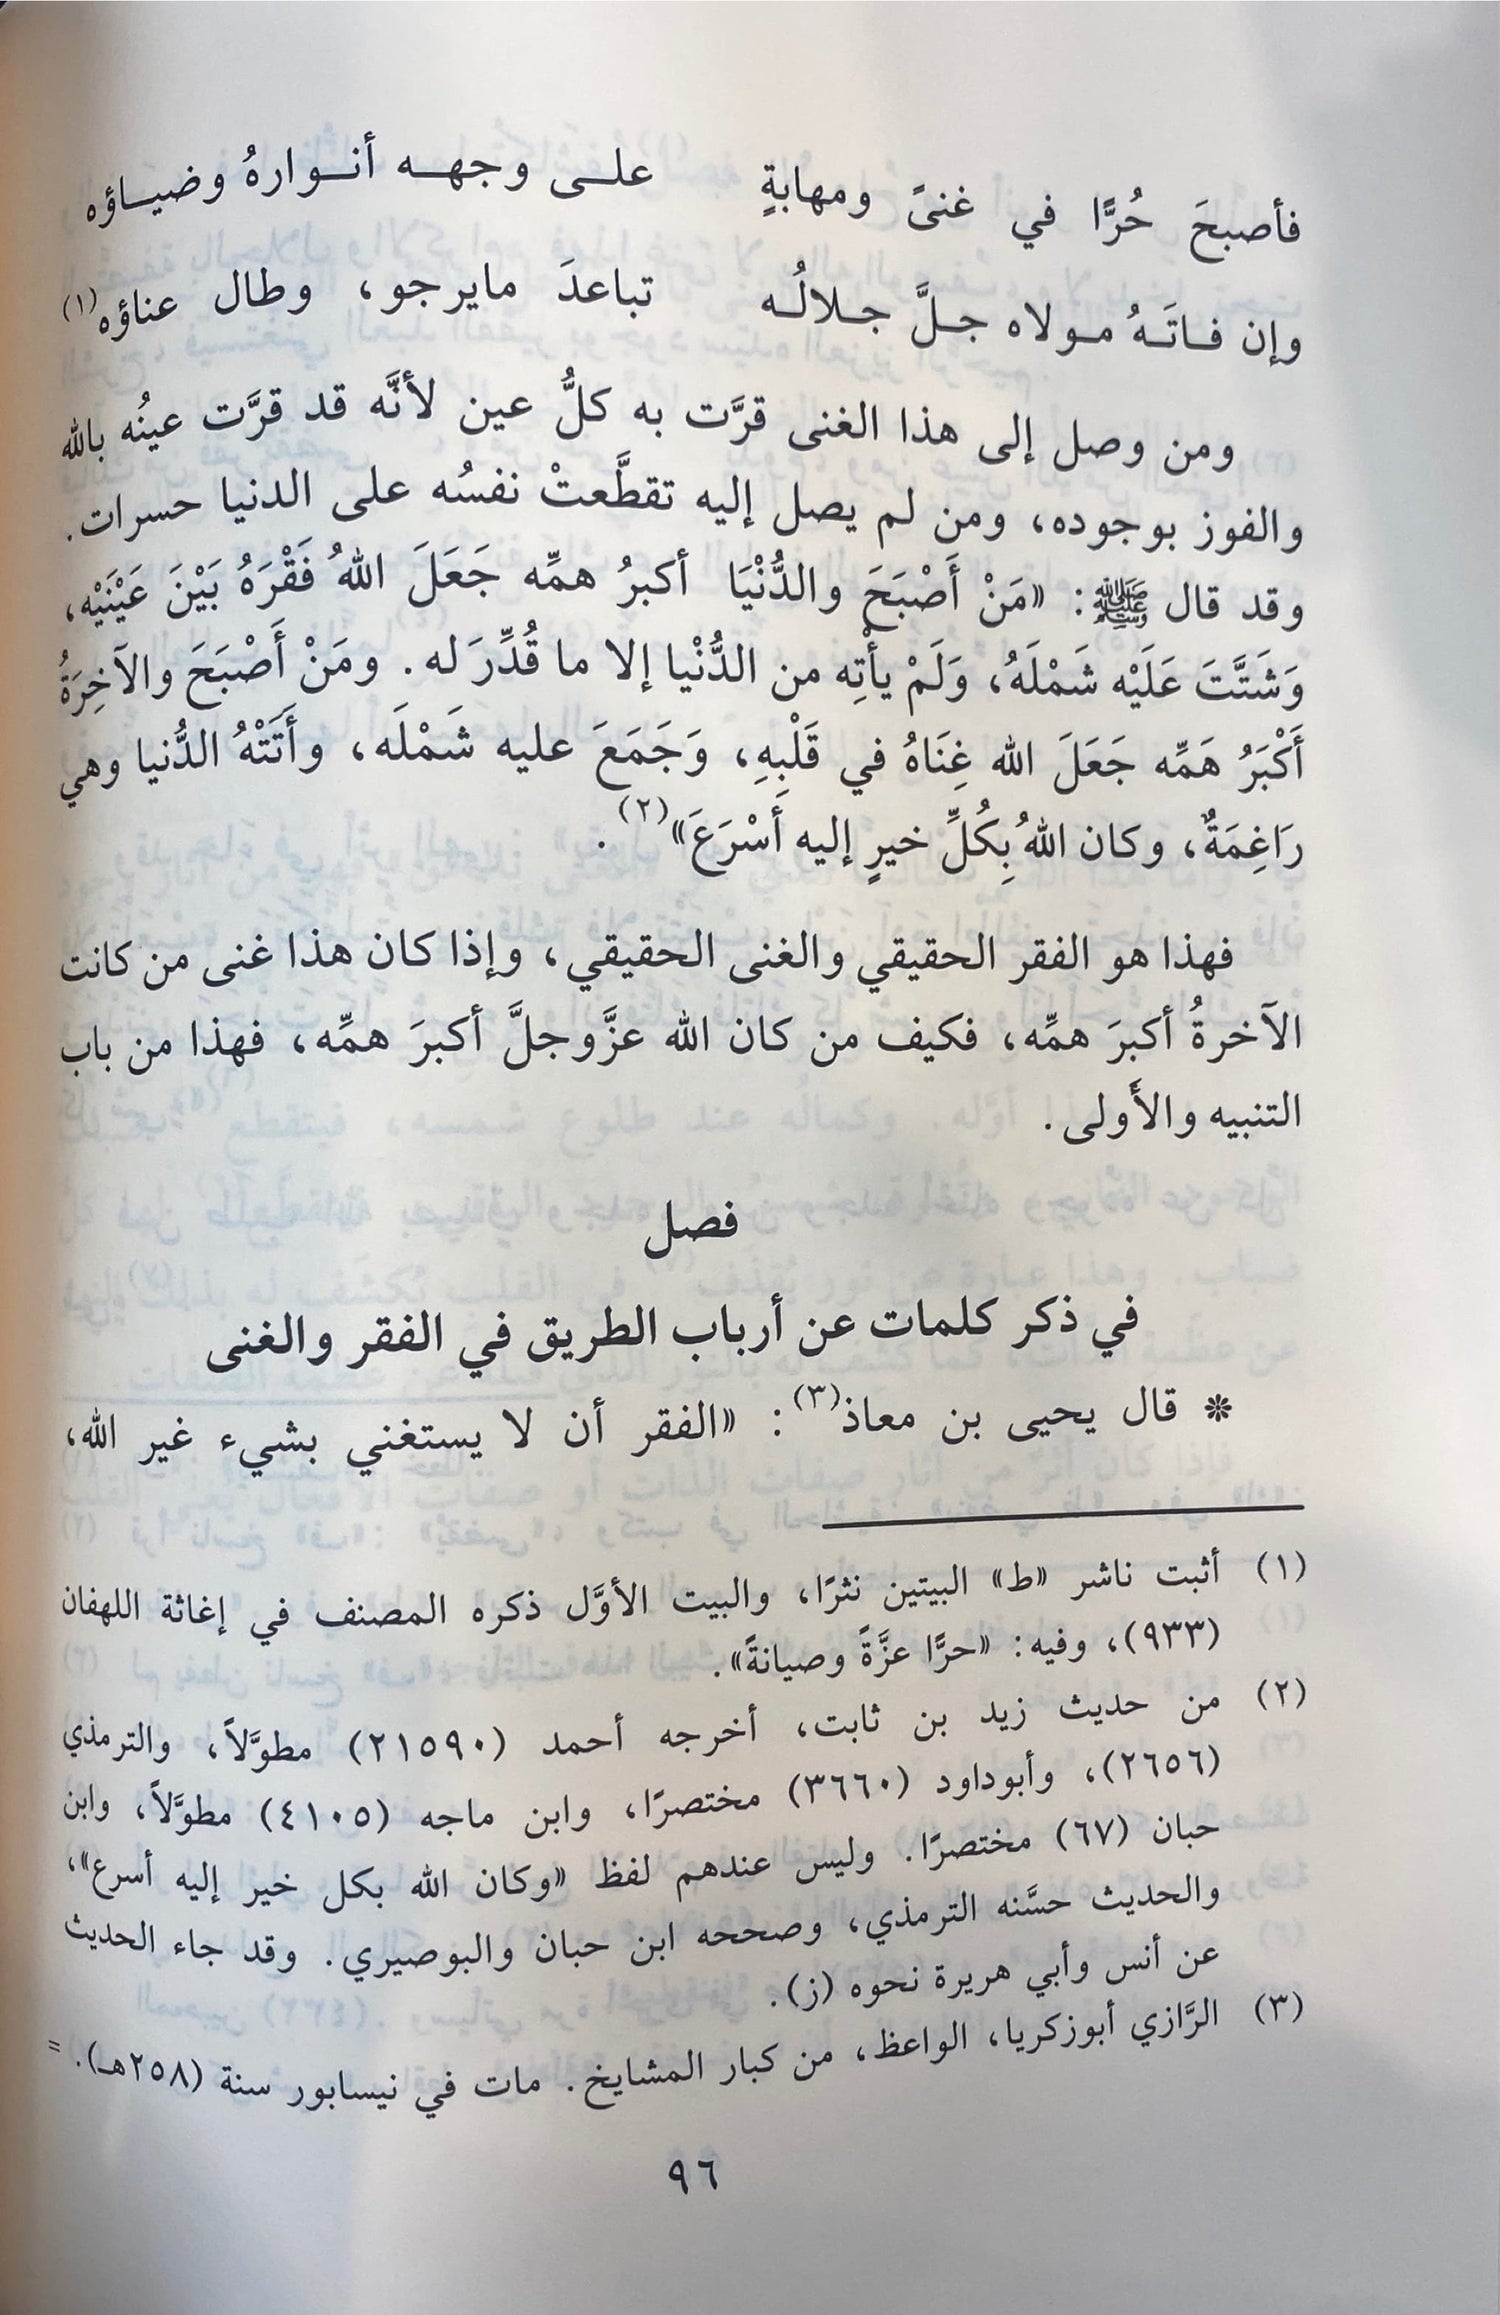 فأصبحَ حُرًّا في غنىً ومهابةٍ على وجهه أنوارهُ وضياؤه
وإن فاتَهُ مولاه جلَّ جلالُه تباعدَ مايرجو، وطال عناؤه(١)
ومن وصل إلى هذا الغنى قرَّت به كلُّ عين لأنَّه قد قرَّت عينُه بالله
والفوز بوجوده، ومن لم يصل إليه تقطَّعتْ نفسُه على الدنيا حسرات.
وقد قال ﷺ: «مَنْ أَصْبَحَ والدُّنْيَا أكبرُ همِّه جَعَلَ اللهُ فَقْرَهُ بَيْنَ عَيْنَيْه،
وَشَتَّتَ عَلَيْه شَمْلَهُ، وَلَمْ يأْتِه من الدُّنْيا إلا ما قُدِّرَ له. ومَنْ أَصْبَحَ والآخِرَةُ
أَكْبَرُ هَمِّه جَعَلَ الله غِنَاهُ في قَلْبِهِ، وَجَمَعَ عليه شَمْلَه، وأَتَتْهُ الدُّنيا وهي
رَاغِمَةٌ، وكان اللهُ بِكُلِّ خيرٍ إليه أَسْرَعَ»(٢).
فهذا هو الفقر الحقيقي والغنى الحقيقي، وإذا كان هذا غنى من كانت
الآخرةُ أكبرَ همِّه، فكيف من كان الله عزَّوجلَّ أكبرَ همِّه، فهذا من باب
التنبيه والأَولى.
فصل
في ذكر كلمات عن أرباب الطريق في الفقر والغنى
* قال يحيى بن معاذ(٣): «الفقر أن لا يستغني بشيء غير الله،
(١) أثبت ناشر «ط» البيتين نثرًا، والبيت الأوَّل ذكره المصنف في إغاثة اللهفان
(٩٣٣)، وفيه: «حرًّا عزَّةً وصيانةً».
(٢) من حديث زيد بن ثابت، أخرجه أحمد (٢١٥٩٠) مطوَّلاً، والترمذي
(٢٦٥٦)، وأبوداود (٣٦٦٠) مختصرًا، وابن ماجه (٤١٠٥) مطوَّلاً، وابن
حبان (٦٧) مختصرًا. وليس عندهم لفظ «وكان الله بكل خير إليه أسرع»،
والحديث حسَّنه الترمذي، وصححه ابن حبان والبوصيري. وقد جاء الحديث
عن أنس وأبي هريرة نحوه (ز).
(٣) الرَّازي أبوزكريا، الواعظ، من كبار المشايخ. مات في نيسابور سنة (٢٥٨هـ). =
٩٦